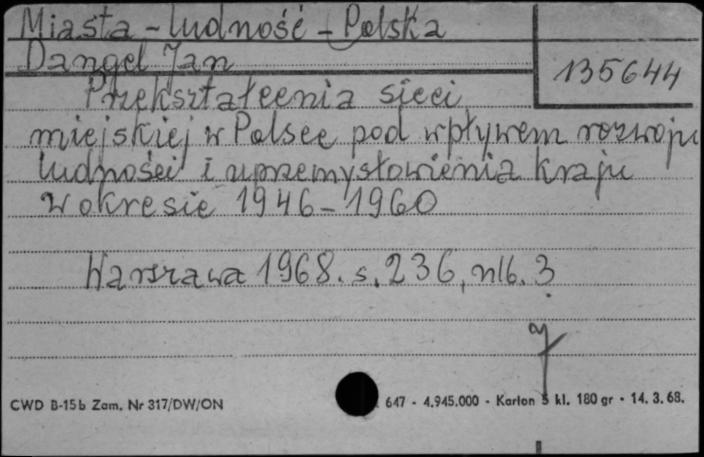 Miasta - ludność - Polska
Dangel Jan
135644
Przekształcenia sieci
miejskiej w Polsce pod wpływem rozwoju
ludności i uprzemysłowienia kraju
w okresie 1946-1960
Warszawa 1968. s. 236, nlb. 3
CWD B-15b Zam. Nr 317/DW/ON
647 - 4.945.000 - Karton 5 kl. 180 gr - 14. 3. 68.